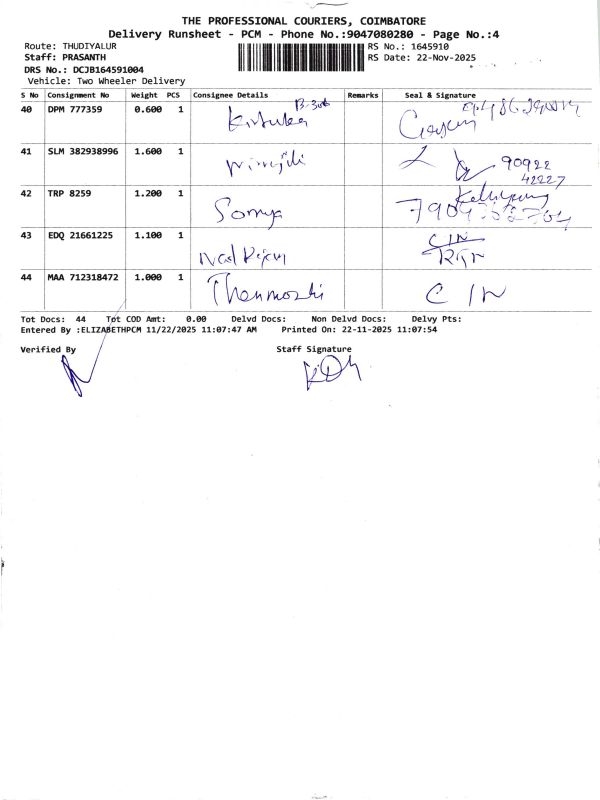 THE PROFESSIONAL COURIERS, COIMBATORE
Delivery Runsheet - PCM - Phone No.:9047080280 - Page No.:4
Route: THUDIYALUR
Staff: PRASANTH
DRS No.: DCJB164591004
Vehicle: Two Wheeler Delivery
RS No.: 1645910
RS Date: 22-Nov-2025
S No Consignment No Weight PCS Consignee Details Remarks Seal & Signature
40 DPM 777359 0.600 1
41 SLM 382938996 1.600 1 90922 42227
42 TRP 8259 1.200 1 Somya
43 EDQ 21661225 1.100 1 CIN
44 MAA 712318472 1.000 1 Thenmozhi CIN
Tot Docs: 44 Tot COD Amt: 0.00 Delvd Docs: Non Delvd Docs: Delvy Pts:
Entered By :ELIZABETHPCM 11/22/2025 11:07:47 AM Printed On: 22-11-2025 11:07:54
Verified By Staff Signature